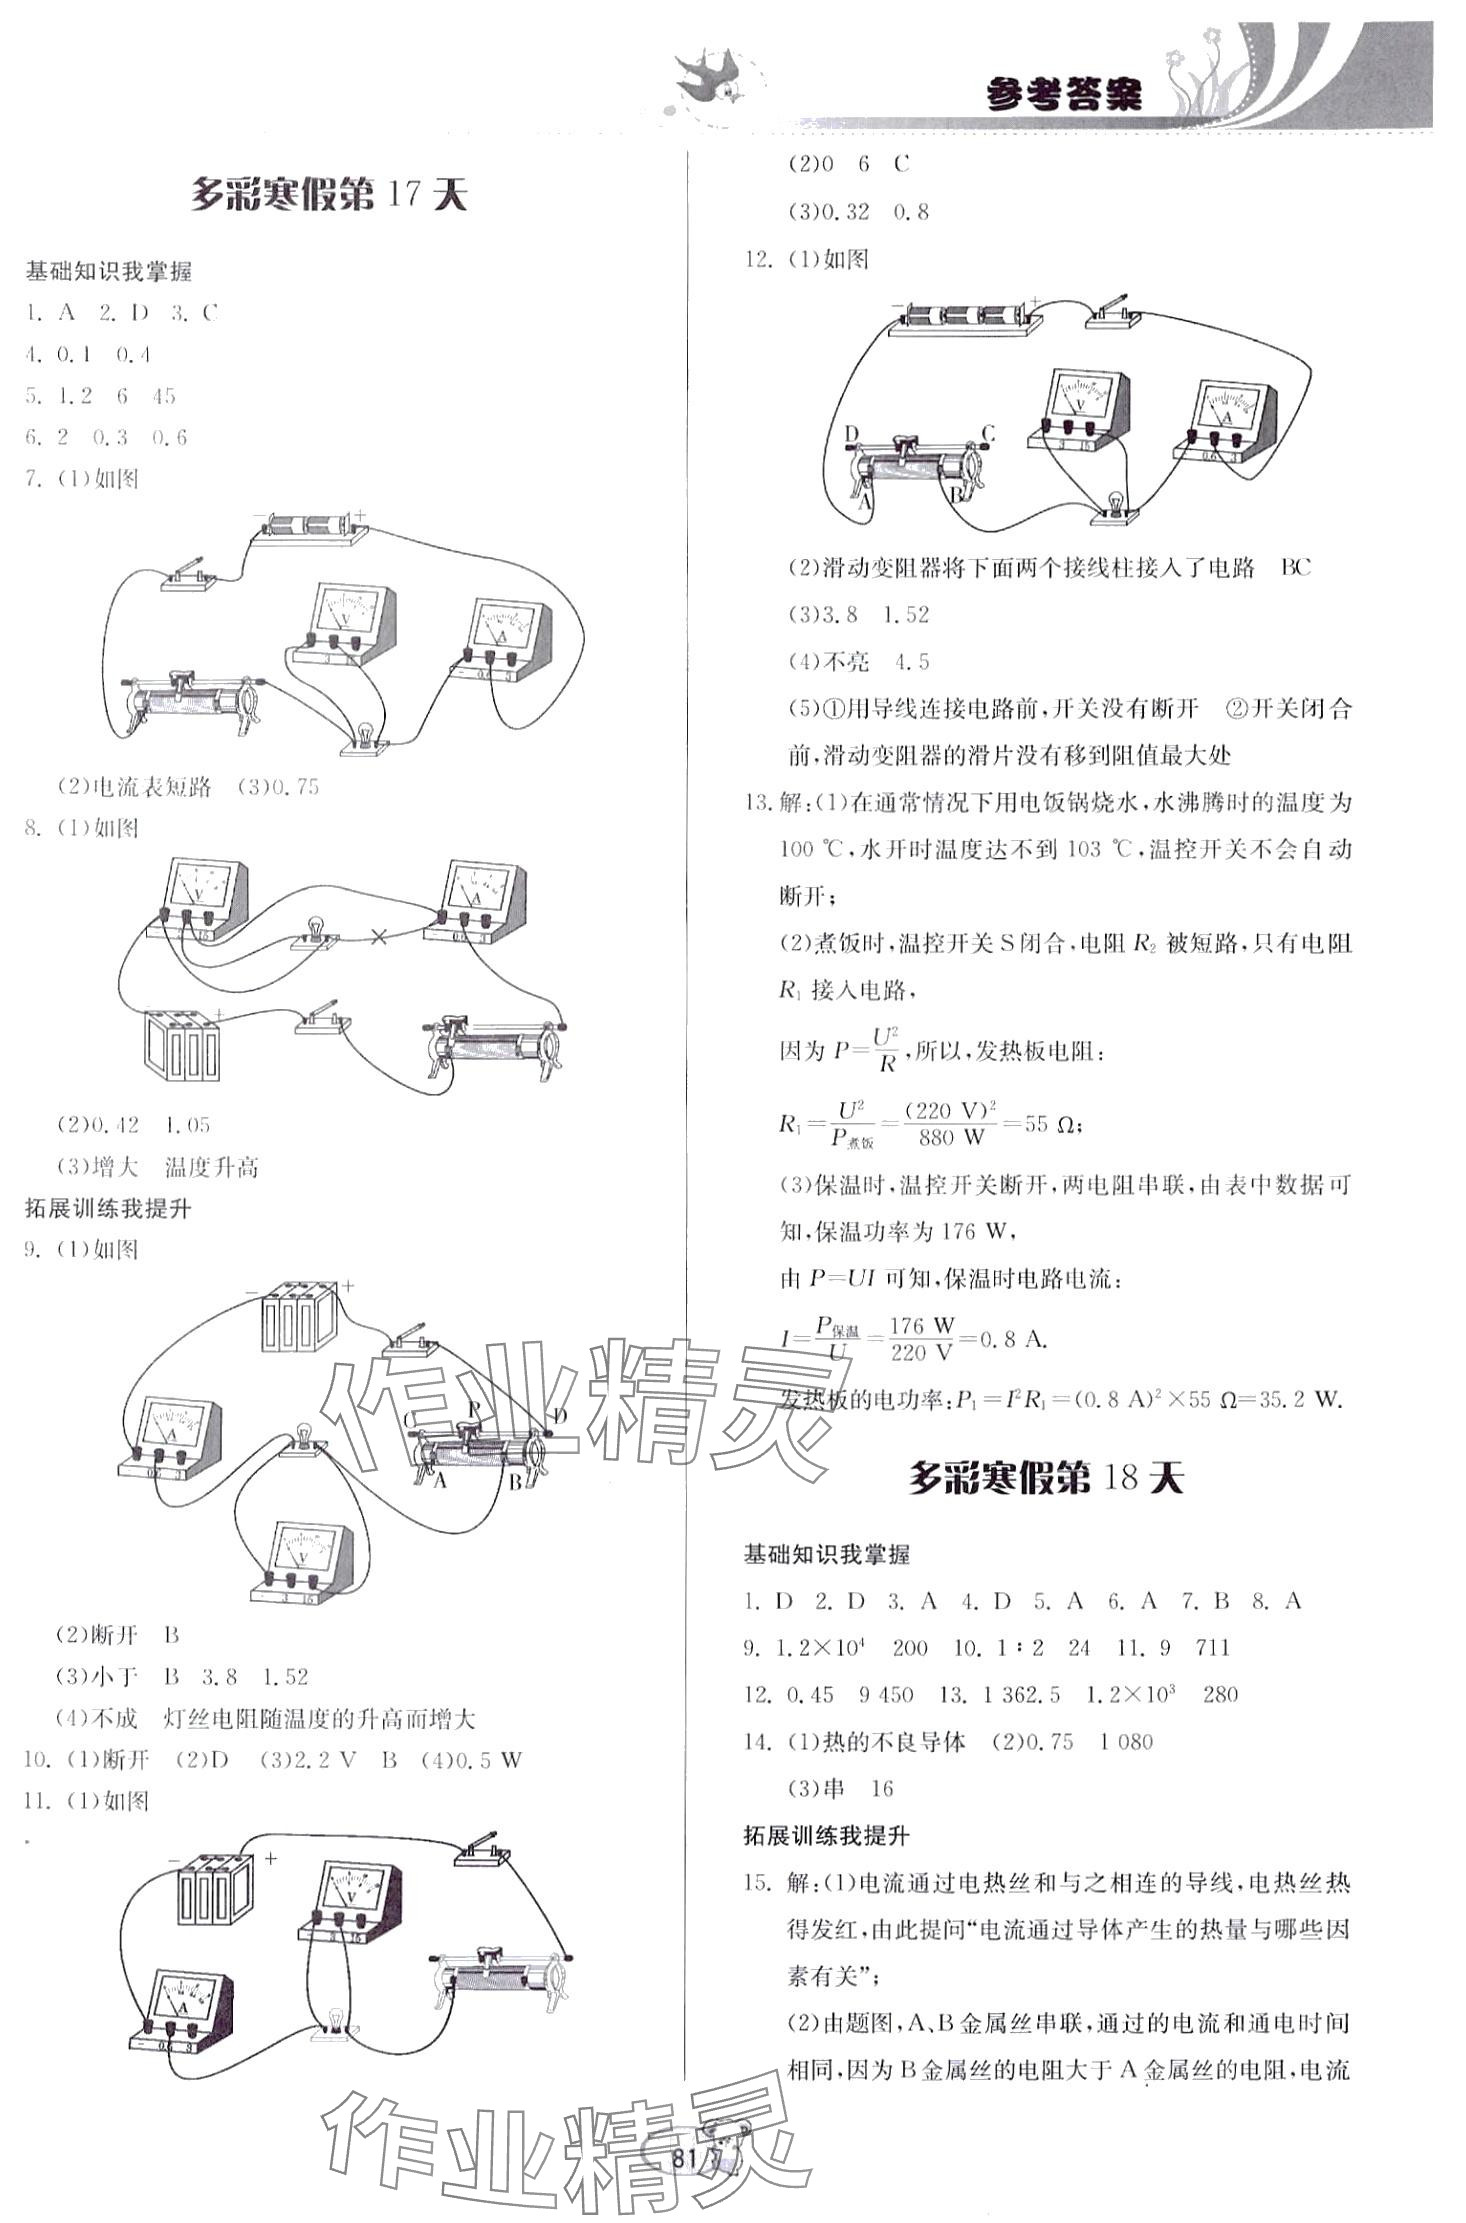 参考答案
多彩寒假第 17 天
基础知识我掌握
1. A 2. D 3. C
4. 0.1 0.4
5. 1.2 6 45
6. 2 0.3 0.6
7. (1)如图
(2)电流表短路 (3)0.75
8. (1)如图
(2)0.42 1.05
(3)增大 温度升高
拓展训练我提升
9. (1)如图
(2)断开 B
(3)小于 B 3.8 1.52
(4)不成 灯丝电阻随温度的升高而增大
10. (1)断开 (2)D (3)2.2 V B (4)0.5 W
11. (1)如图
(2)0 6 C
(3)0.32 0.8
12. (1)如图
(2)滑动变阻器将下面两个接线柱接入了电路 BC
(3)3.8 1.52
(4)不亮 4.5
(5)①用导线连接电路前,开关没有断开 ②开关闭合
前,滑动变阻器的滑片没有移到阻值最大处
13. 解:(1)在通常情况下用电饭锅烧水,水沸腾时的温度为
100 ℃,水开时温度达不到 103 ℃,温控开关不会自动
断开;
(2)煮饭时,温控开关 S 闭合,电阻 R₂ 被短路,只有电阻
R₁ 接入电路,
因为 P=U²/R,所以,发热板电阻:
R₁=U²/P煮饭=(220 V)²/880 W=55 Ω;
(3)保温时,温控开关断开,两电阻串联,由表中数据可
知,保温功率为 176 W,
由 P=UI 可知,保温时电路电流:
I=P保温/U=176 W/220 V=0.8 A.
发热板的电功率:P₁=I²R₁=(0.8 A)²×55 Ω=35.2 W.
多彩寒假第 18 天
基础知识我掌握
1. D 2. D 3. A 4. D 5. A 6. A 7. B 8. A
9. 1.2×10⁴ 200 10. 1∶2 24 11. 9 711
12. 0.45 9 450 13. 1 362.5 1.2×10³ 280
14. (1)热的不良导体 (2)0.75 1 080
(3)串 16
拓展训练我提升
15. 解:(1)电流通过电热丝和与之相连的导线,电热丝热
得发红,由此提问“电流通过导体产生的热量与哪些因
素有关”;
(2)由题图,A、B 金属丝串联,通过的电流和通电时间
相同,因为 B 金属丝的电阻大于 A 金属丝的电阻,电流
81
作业精灵
作业精灵